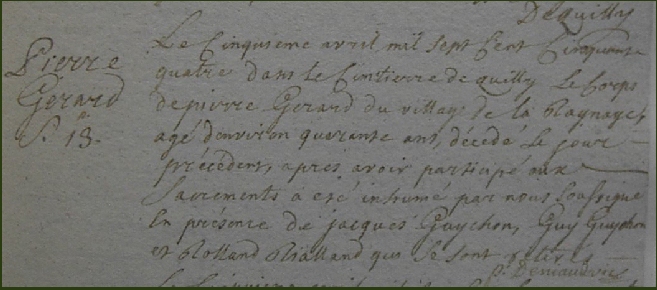 De quilly
Pierre
Gerard
S. 13.
Le Cinquieme avril mil sept Cent Cinquante
quatre dans le Cimtierre de quilly Le Corps
de pierre Gerard du village de la
agé d'environ quarante ans, décédé le jour
précédent, apres avoir participé aux
Sacrements a esté inhumé par nous soussigne
En présence de jacques Guychon, Guy Guychon
et Rolland Rialland qui se sont retirés